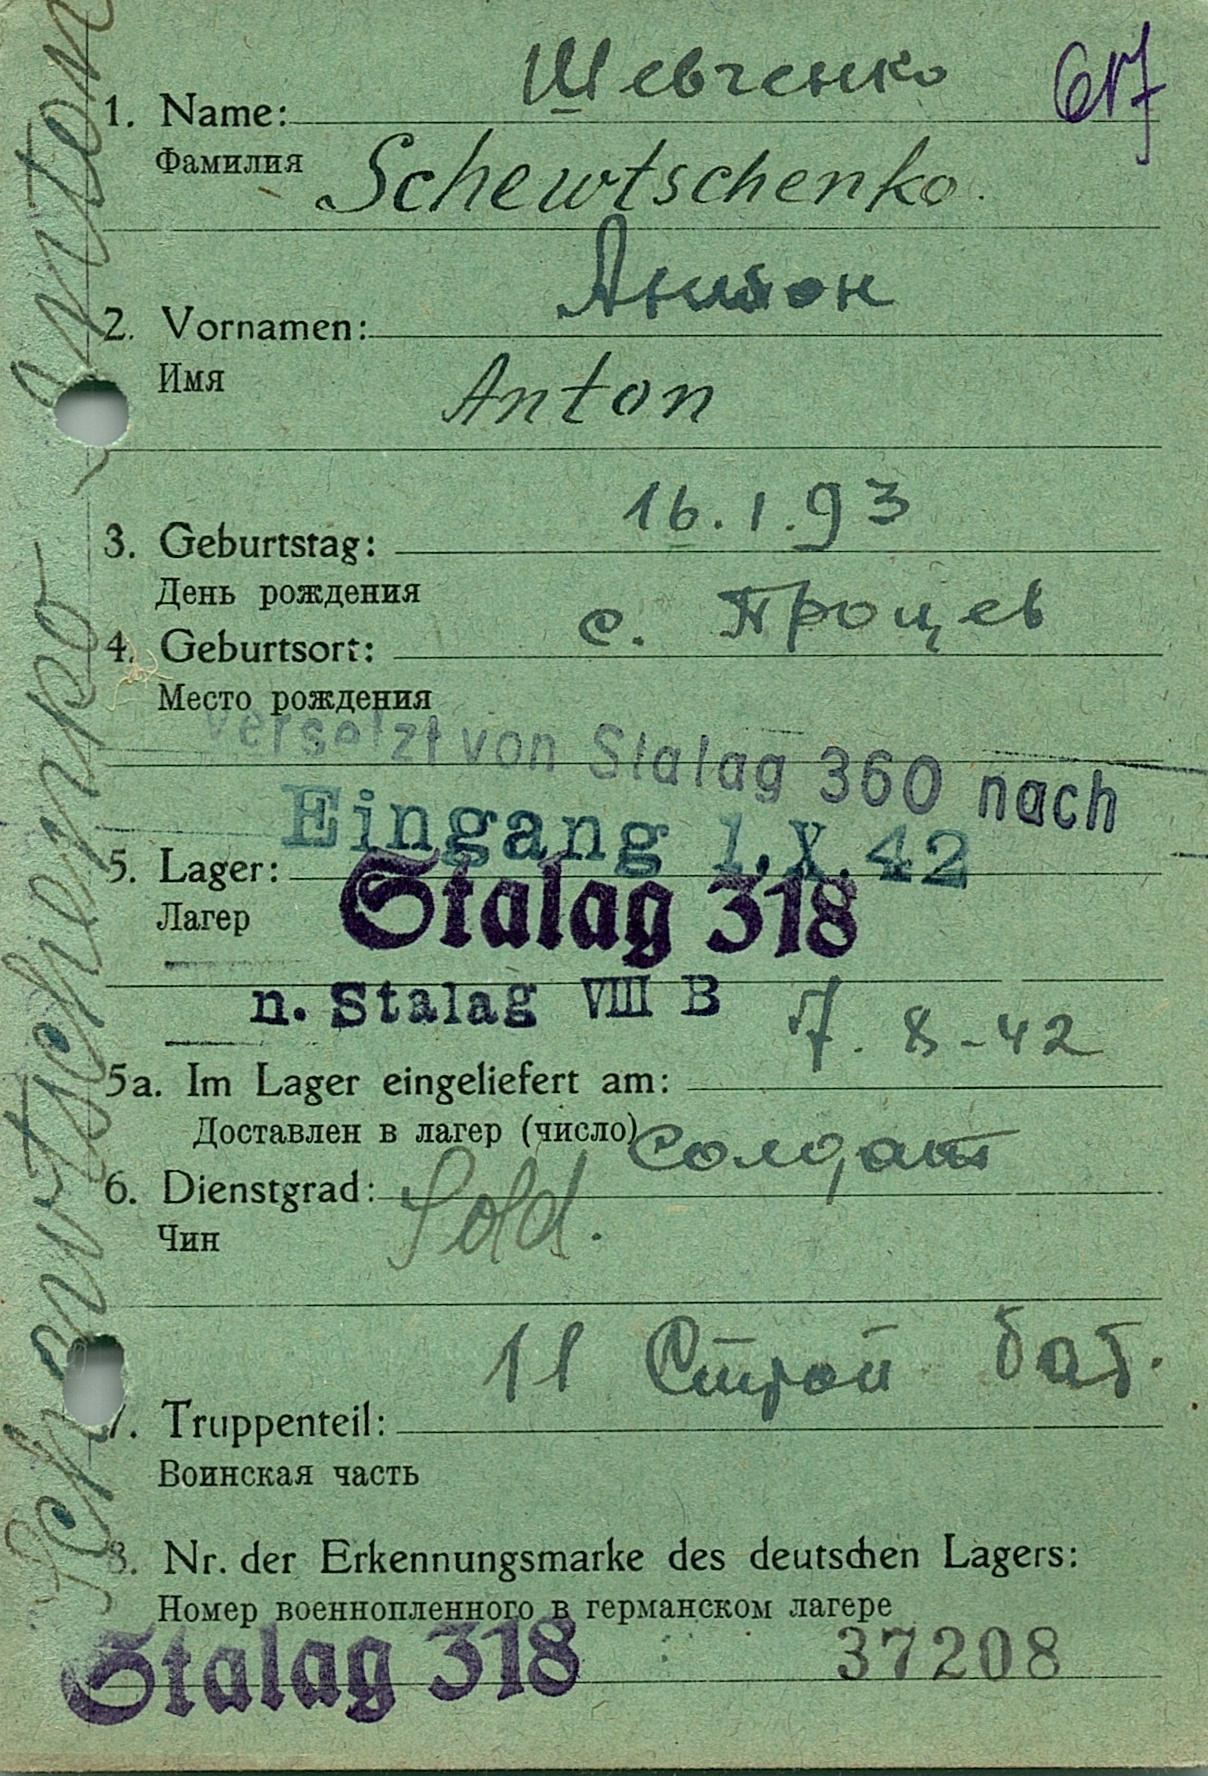 Шевченко
617
1. Name:
Фамилия
Schewtschenko.
Антон
2. Vornamen:
Имя
Anton
16.1.93
3. Geburtstag:
День рождения
с. Процев
4. Geburtsort:
Место рождения
versetzt von Stalag 360 nach
Eingang 1.X.42
5. Lager:
Stalag 318
Лагерь
n. Stalag VIII B
7. 8-42
5a. Im Lager eingeliefert am:
Доставлен в лагер (число)
Солдат
6. Dienstgrad: Sold.
Чин
11 Строй бат.
7. Truppenteil:
Воинская часть
8. Nr. der Erkennungsmarke des deutschen Lagers:
Номер военнопленного в германском лагере
Stalag 318
37208
Schewtschenko Anton